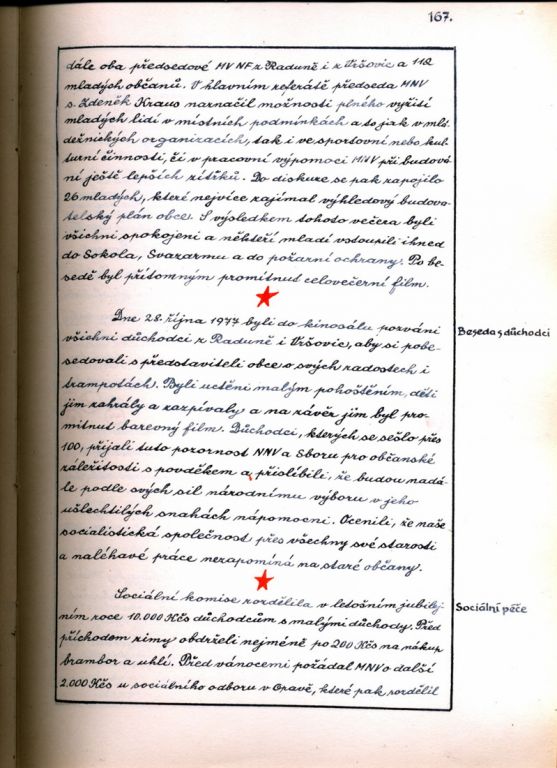 167.
dále oba předsedové MV NF z Raduně i z Vršovic a 112
mladých občanů. V hlavním referátě předseda MNV
s. Zdeněk Kraus naznačil možnosti plného vyžití
mladých lidí v místních podmínkách a to jak v mlá-
dežnických organizacích, tak i ve sportovní nebo kul-
turní činnosti, či v pracovní výpomoci MNV při budová-
ní ještě lepších zítřků. Do diskuze se pak zapojilo
26 mladých, které nejvíce zajímal výhledový budova-
telský plán obce. S výsledkem tohoto večera byli
všichni spokojeni a někteří mladí vstoupili ihned
do Sokola, Svazarmu a do požární ochrany. Po be-
sedě byl přítomným promítnut celovečerní film.
Dne 28. října 1977 byli do kinosálu pozváni
všichni důchodci z Raduně i Vršovic, aby si pobe-
sedovali s představiteli obce o svých radostech i
trampotách. Byli uctěni malým pohoštěním, děti
jim zahrály a zazpívaly a na závěr jim byl pro-
mítnut barevný film. Důchodci, kterých se sešlo přes
100, přijali tuto pozornost NNV a Sboru pro občanské
záležitosti s povděkem a přislíbili, že budou nadá-
le podle svých sil národnímu výboru v jeho
ušlechtilých snahách nápomocni. Ocenili, že naše
socialistická společnost přes všechny své starosti
a naléhavé práce nezapomíná na staré občany.
Beseda s důchodci
Sociální komise rozdělila v letošním jubilej-
ním roce 10.000 Kčs důchodcům s malými důchody. Před
příchodem zimy obdrželi nejméně po 200 Kčs na nákup
brambor a uhlí. Před vánocemi požádal MNV o další
2.000 Kčs u sociálního odboru v Opavě, které pak rozdělil
Sociální péče